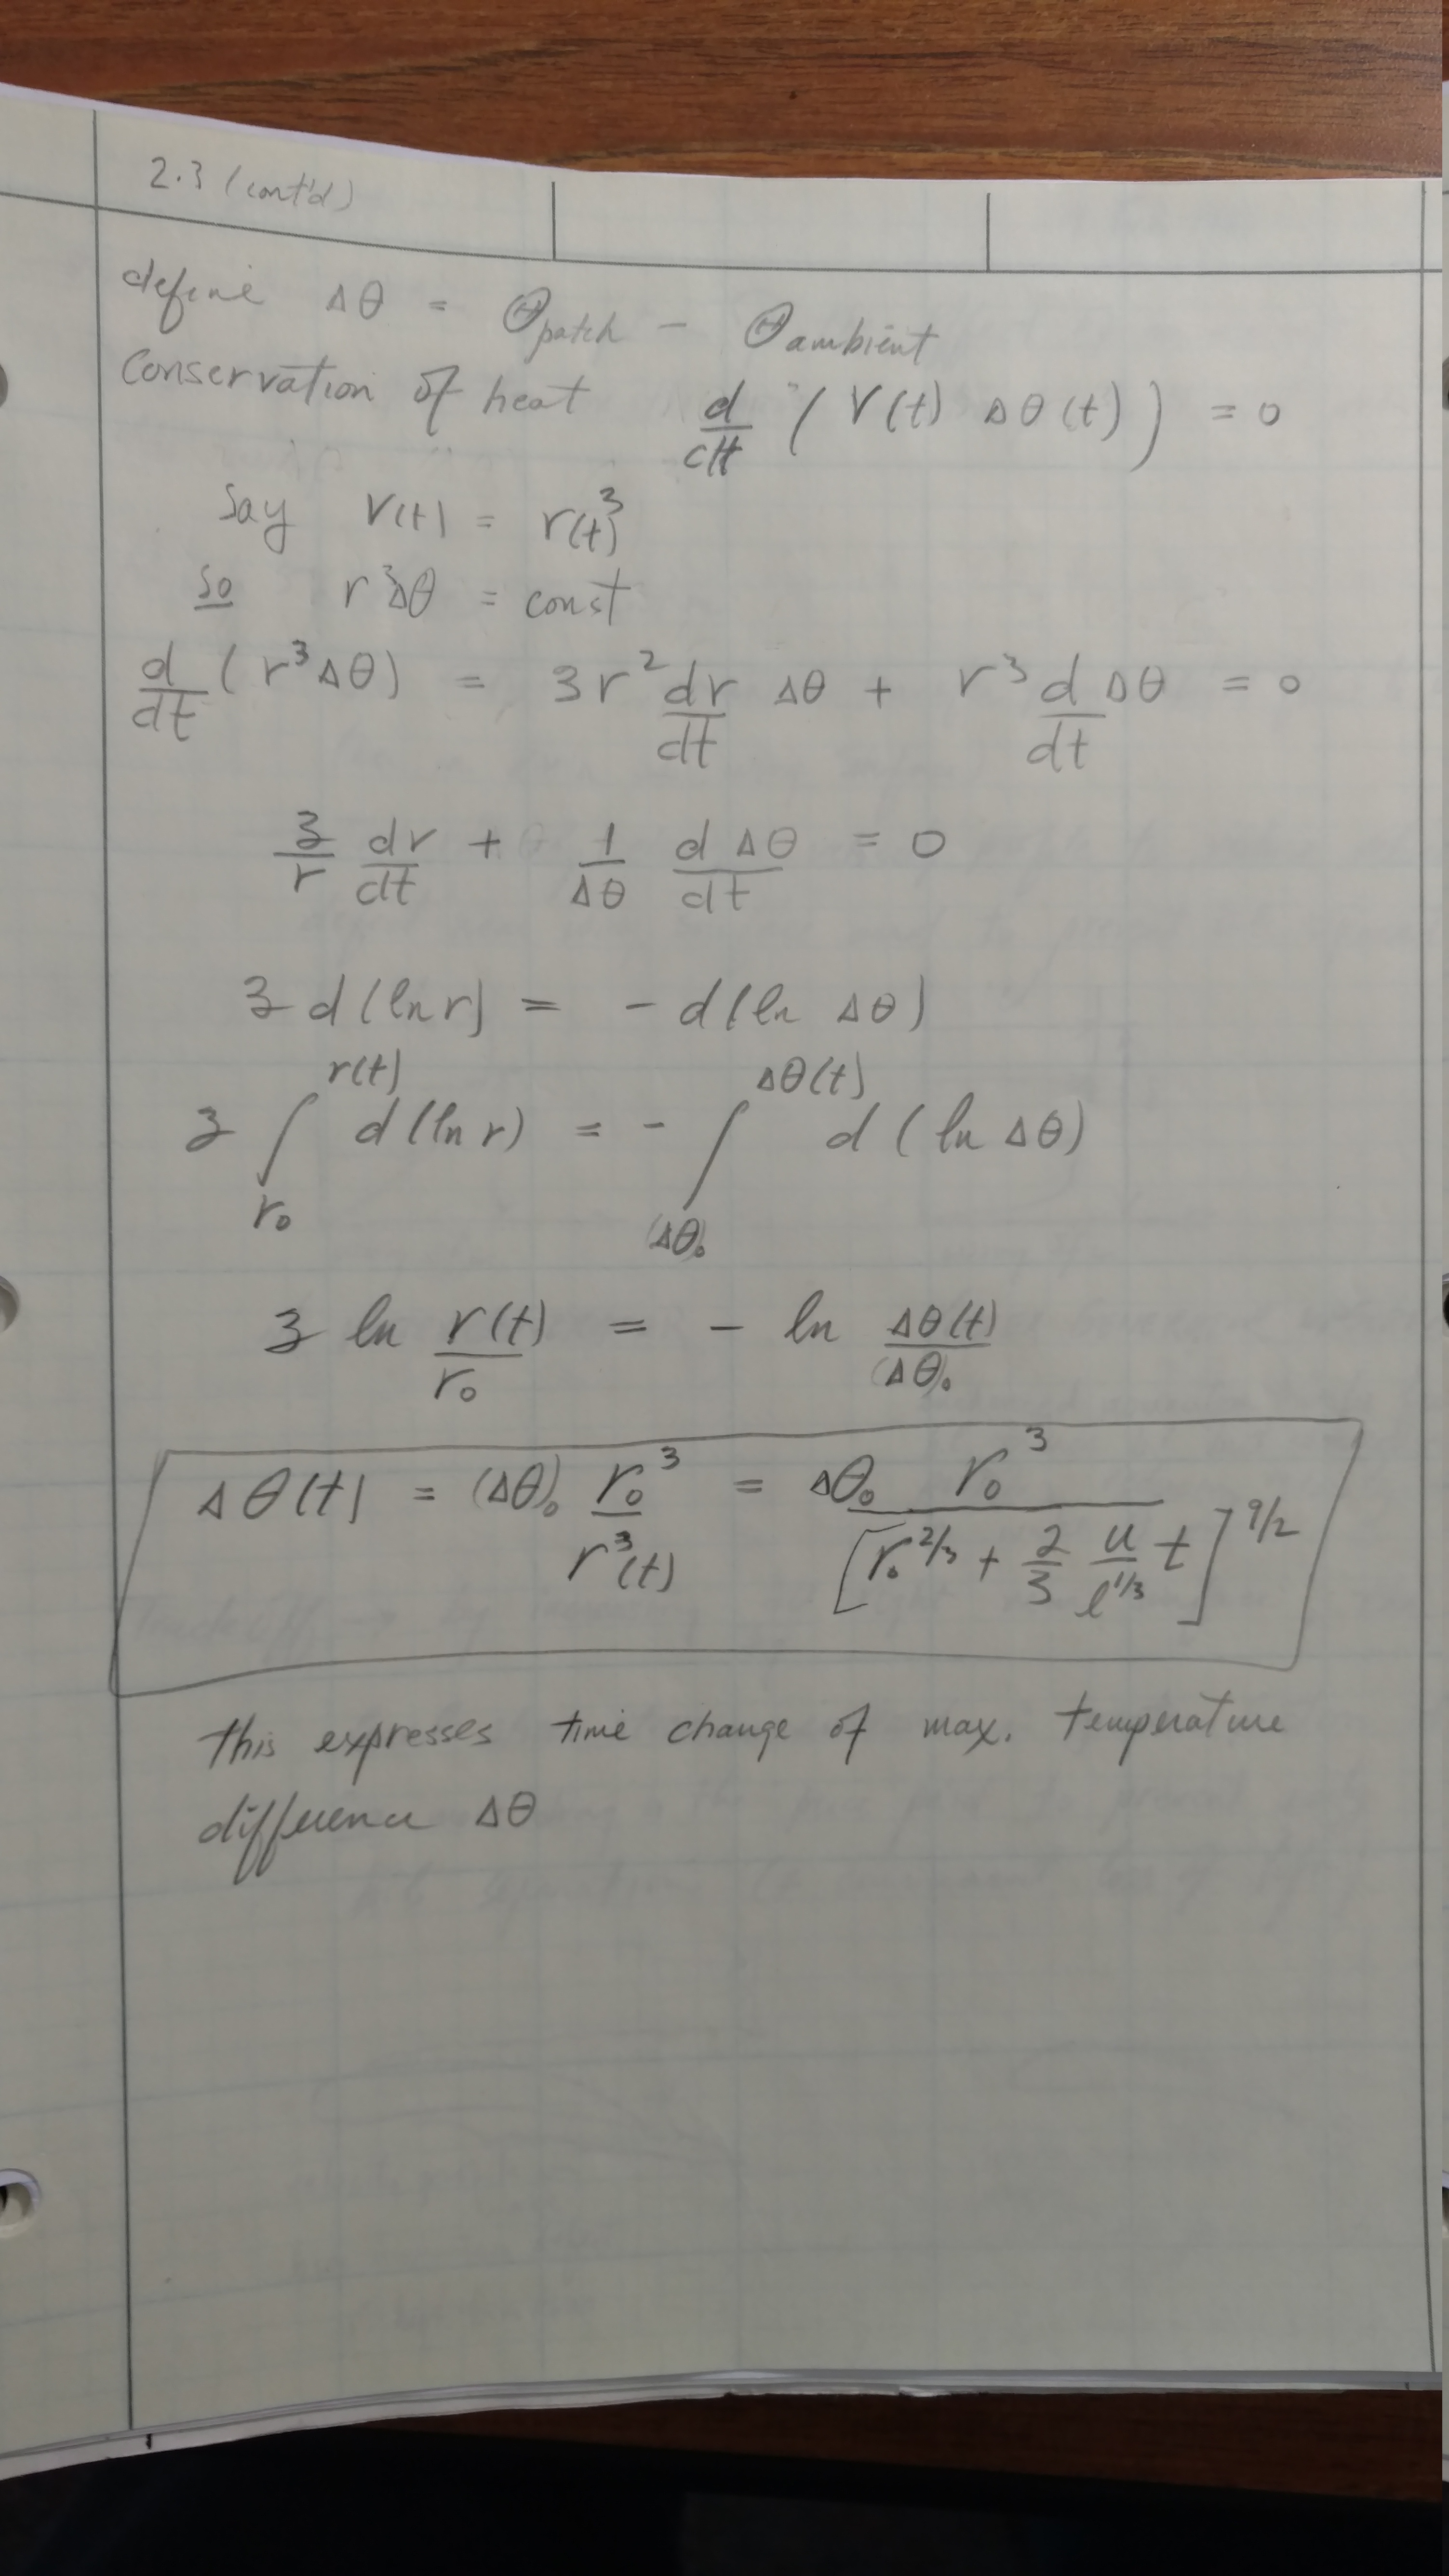 2.3 (cont'd)
define Δθ = Θpatch − Θambient
Conservation of heat d/dt (V(t) Δθ(t)) = 0
Say V(t) = r(t)³
so r³Δθ = const
d/dt (r³Δθ) = 3r² dr/dt Δθ + r³ d/dt Δθ = 0
3/r dr/dt + 1/Δθ d Δθ/dt = 0
3 d(ln r) = − d(ln Δθ)
3 ∫_{r₀}^{r(t)} d(ln r) = − ∫_{(Δθ)₀}^{Δθ(t)} d(ln Δθ)
3 ln r(t)/r₀ = − ln Δθ(t)/(Δθ)₀
Δθ(t) = (Δθ)₀ r₀³/r³(t) = Δθ₀ r₀³/[r₀^{2/3} + 2/3 u/l^{1/3} t]^{9/2}
this expresses time change of max. temperature
difference Δθ